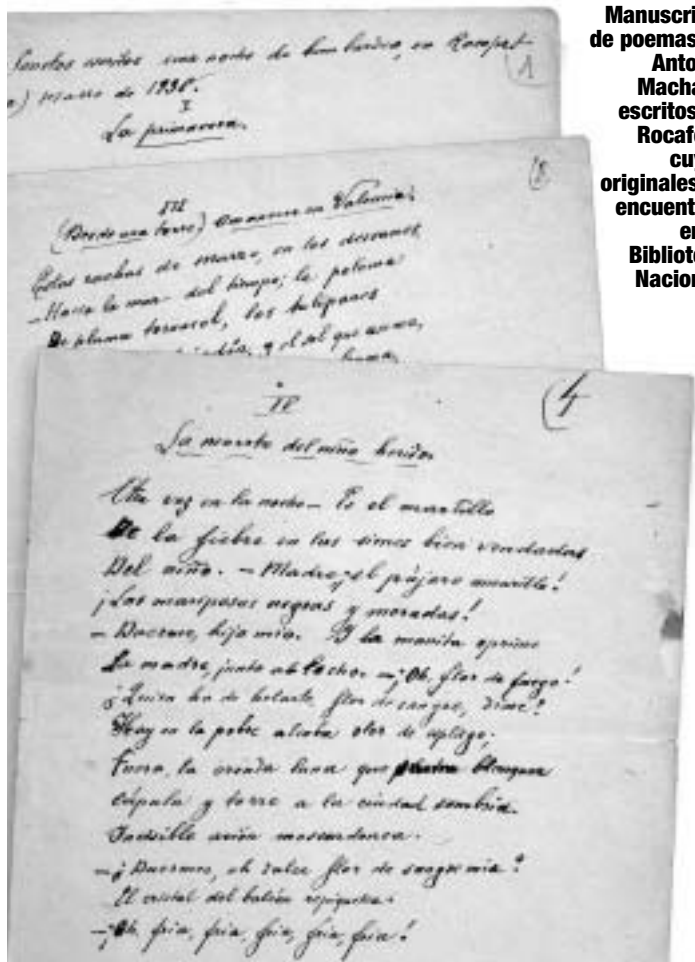 Manuscri
de poemas
Anto
Macha
escritos
Rocafo
cuy
originales
encuent
en
Bibliote
Nacion
Sonetos escritos una noche de bombardeo, en Rocafort
marzo de 1938.
1
I
La primavera.
III
(Desde una torre) Amanecer en Valencia
Estas rachas de marzo, en los desvanes
- Hacia la mar - del tiempo; la paloma
De pluma tornasol, los tulipanes
y el sol que asoma,
4
IV
La muerte del niño herido
Otra vez en la noche - Es el martillo
De la fiebre en las sienes bien vendadas
Del niño. - Madre, ¡el pájaro amarillo!
¡Las mariposas negras y moradas!
- Duerme, hijo mío. Y la manita oprime
La madre, junto al lecho. - ¡Oh, flor de fuego!
¿Quien ha de helarte, flor de sangre, dime?
Hay en la pobre alcoba olor de espliego;
Fuera, la oronda luna que blanquea
cúpula y torre a la ciudad sombría.
Invisible avión moscardonea.
- ¿Duermes, oh dulce flor de sangre mía?
El cristal del balcón repiquetea.
- ¡Oh, fría, fría, fría, fría, fría!